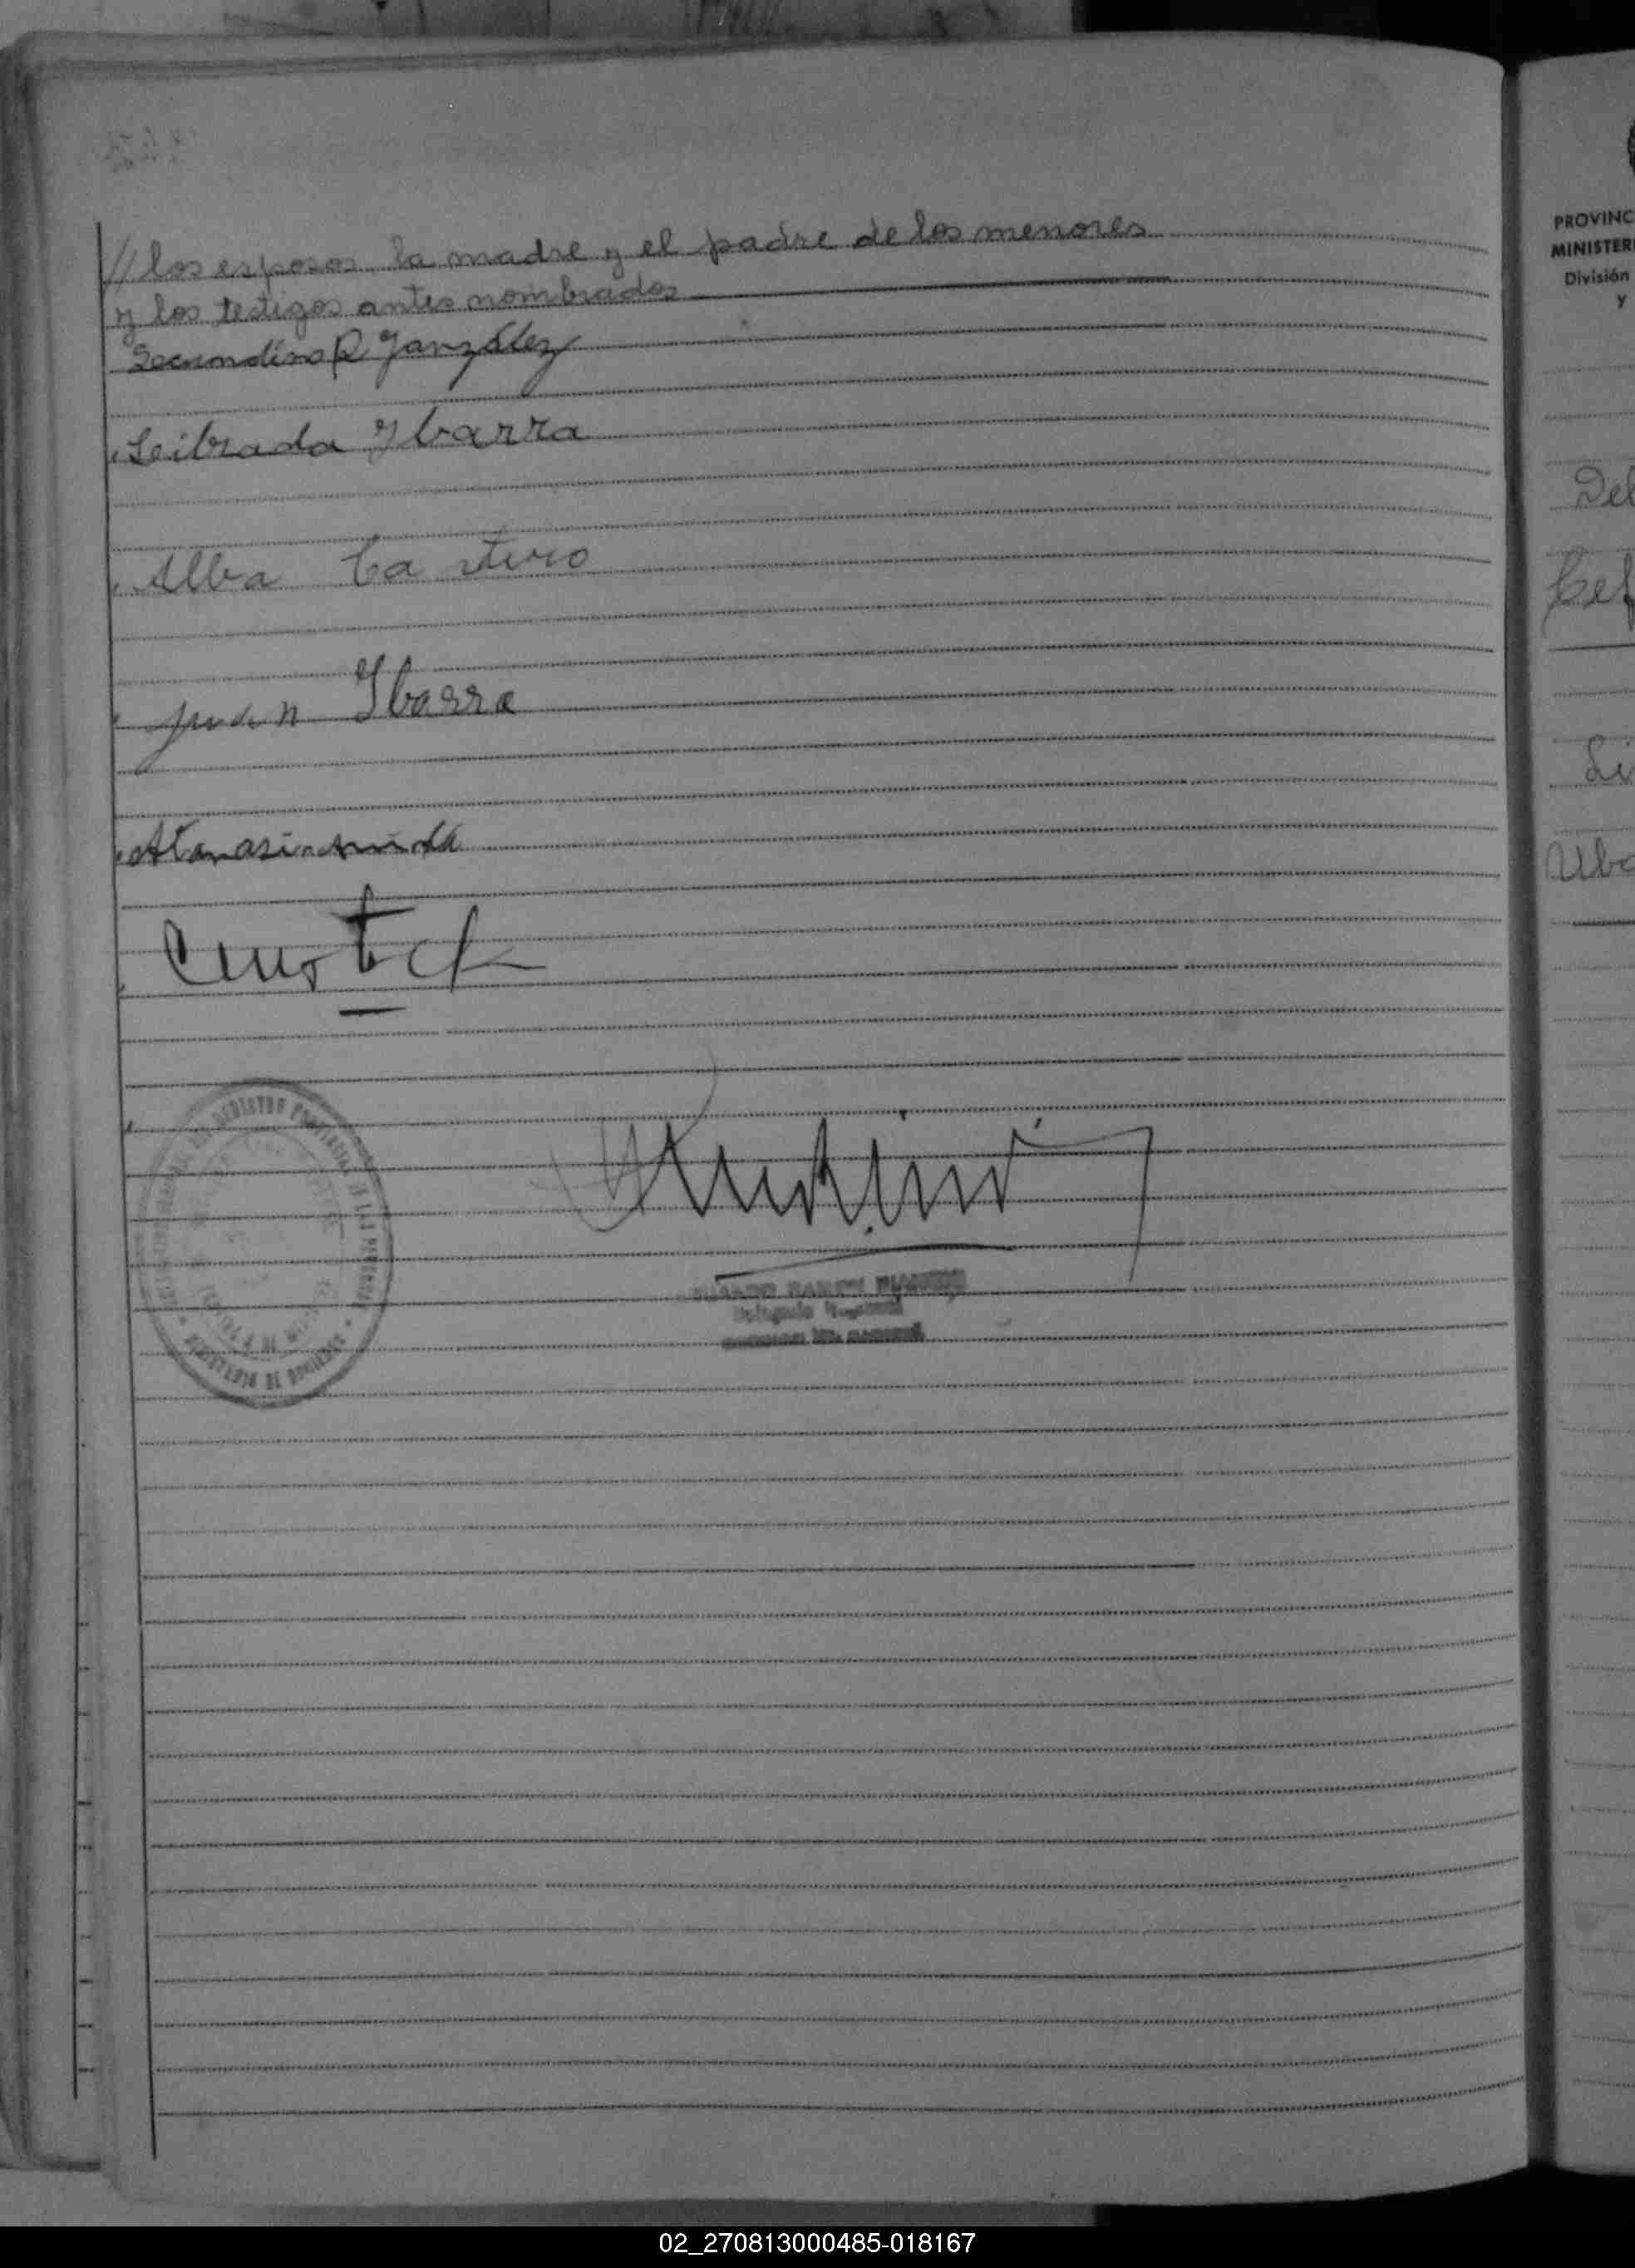 // los esposos, la madre y el padre de los menores
y los testigos antes nombrados
Secundino R. González
Leibrada Ybarra
Alba Ca stiro
Juan Ibarra
Atanasio
REGISTRO PROVINCIAL DE LAS PERSONAS
MINISTERIO DE GOBIERNO
PROVINC
MINISTER
División
Y
Del
Cef
Li
Uba
02_270813000485-018167